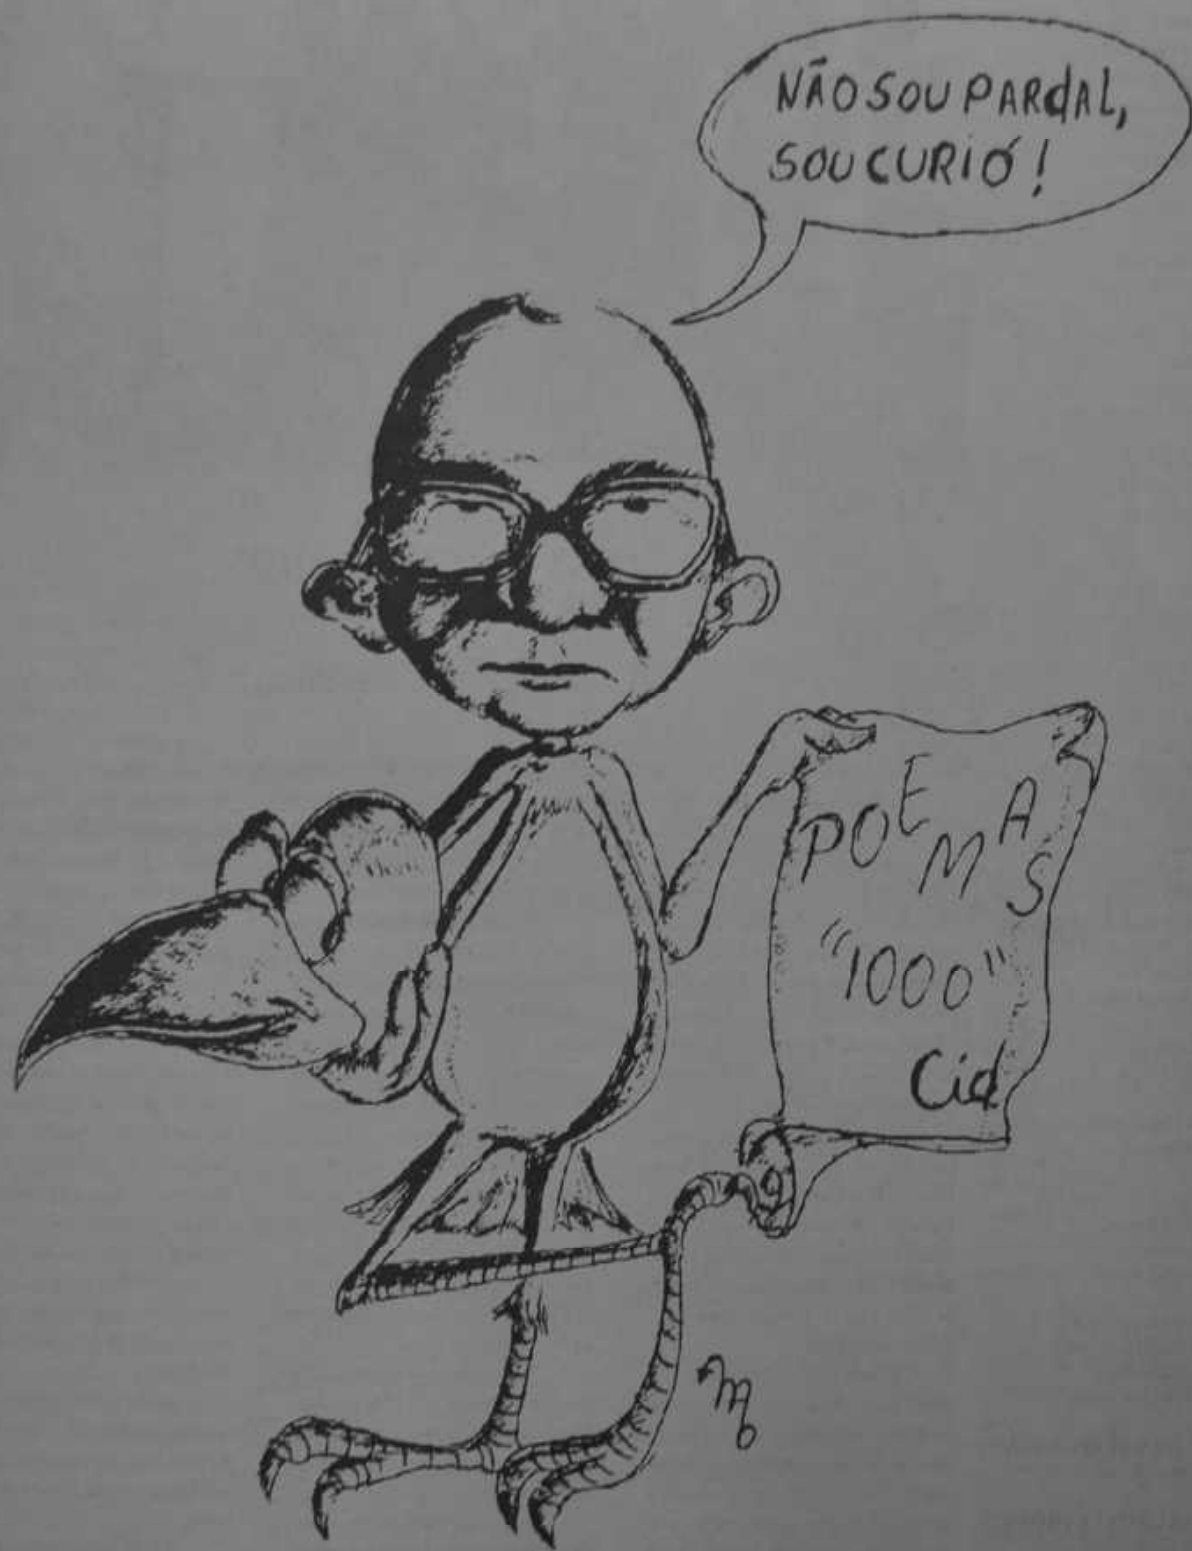 NÃO SOU PARdAL,
SOU CURIÓ!
POEMAS
"1000"
Cid